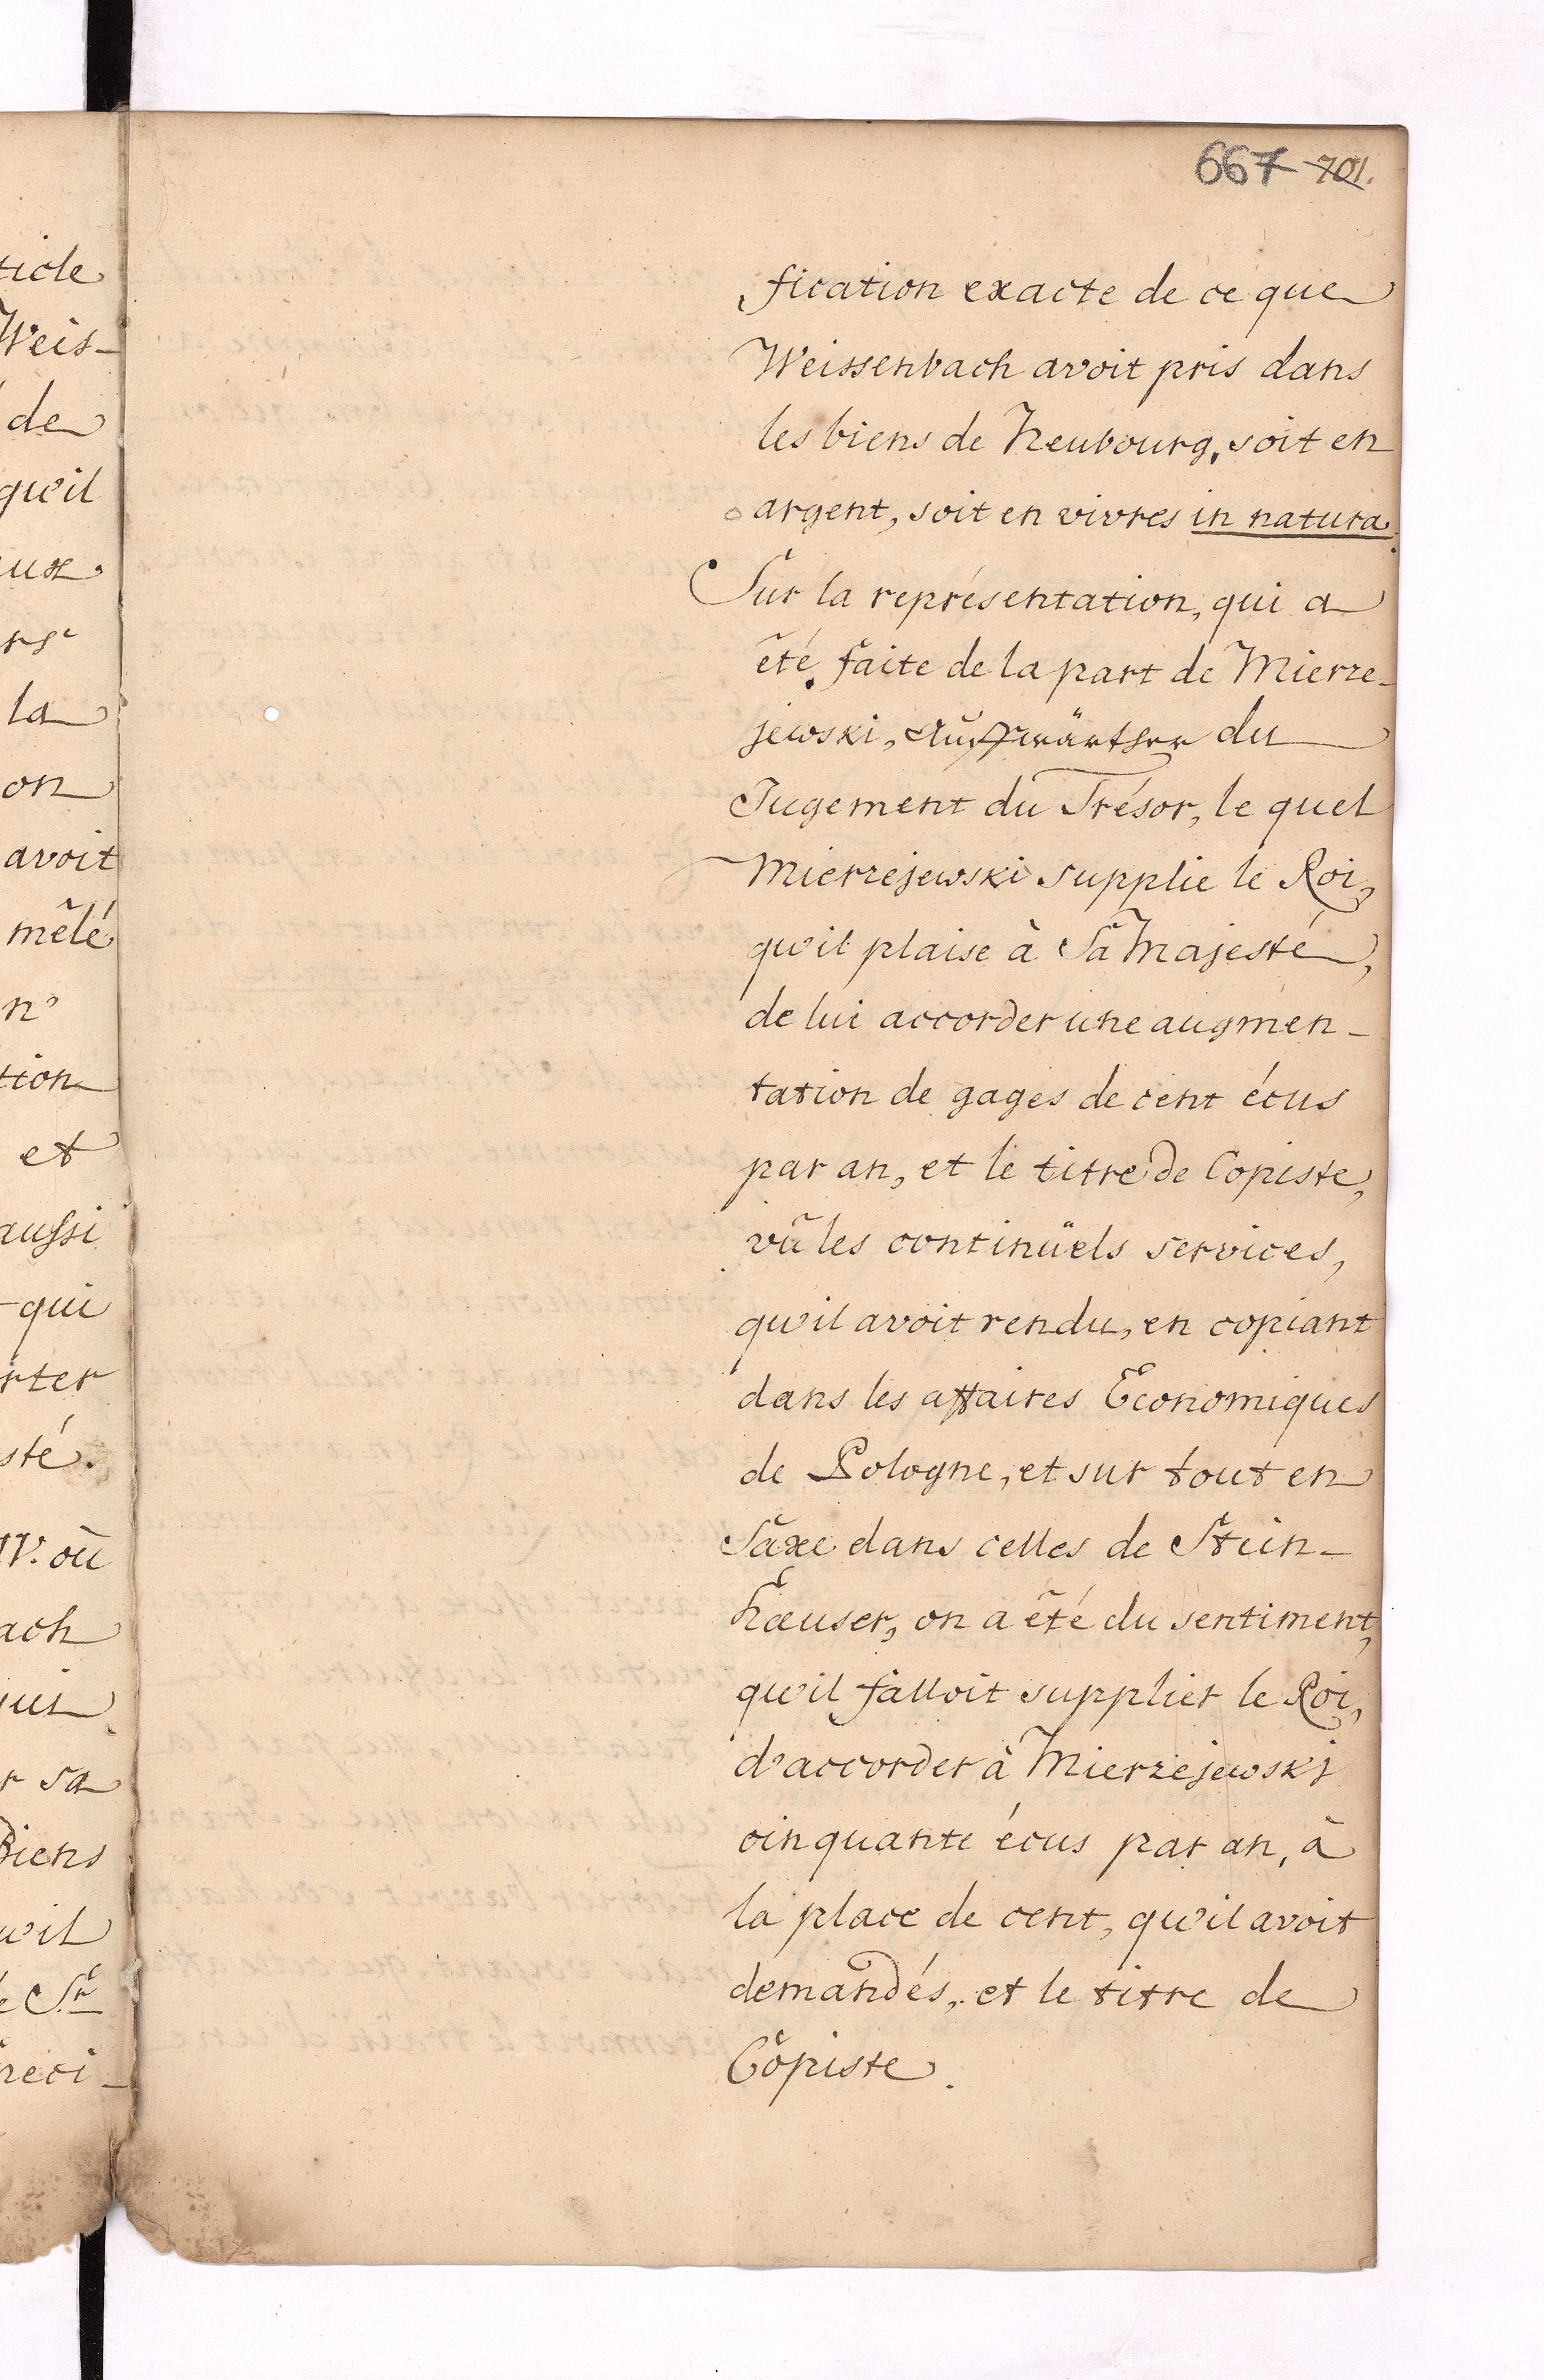 667 701.
ticle
Weis-
de
qu'il
la
on
avoit
mêlé
tion
et
aussi
qui
rter
sté.
IV. où
ach
qui
r sa
Biens
u'il
Sr
fication exacte de ce que
Weissenbach avoit pris dans
les biens de Neubourg, soit en
argent, soit en vivres in natura.
Sur la représentation, qui a
êté faite de la part de Mierze-
jewski, Auffwärther du
Jugement du Trésor, le quel
Mierzejewski supplie le Roi,
qu'il plaise à Sa Majesté,
de lui accorder une augmen-
tation de gages de cent écus
par an, et le titre de Copiste,
vû les continüels services,
qu'il avoit rendu, en copiant
dans les affaires Economiques
de Pologne, et sur tout en
Saxe dans celles de Stein-
hæuser, on a êté du sentiment,
qu'il falloit supplier le Roi,
d'accorder à Mierzejewski
cinquante écus par an, à
la place de cent, qu'il avoit
demandés, et le titre de
Copiste.